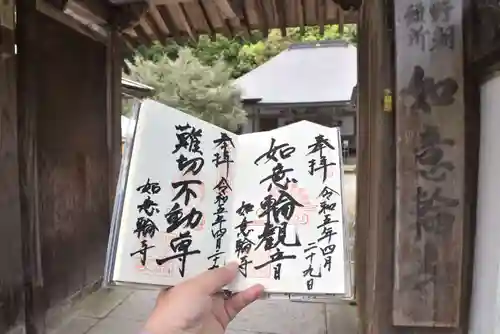 如意輪寺
奉拝 令和五年四月
二十九日
如意輪観音
如意輪寺
奉拝 令和五年四月二十
難切不動尊
如意輪寺